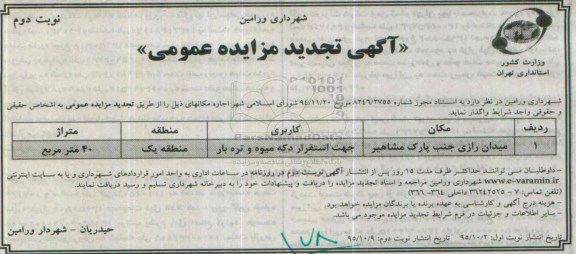 نوبت دوم
شهرداری ورامین
«آگهی تجدید مزایده عمومی»
وزارت کشور
استانداری تهران
شهرداری ورامین در نظر دارد به استناد مجوز شماره ۸۳۴۶/۳۷۵۵ مورخ ۹۴/۱۱/۲۰ شورای اسلامی شهر، اجاره مکانهای ذیل را از طریق تجدید مزایده عمومی به اشخاص حقیقی
و حقوقی واجد شرایط واگذار نماید.
ردیف مکان کاربری منطقه متراژ
۱ میدان رازی جنب پارک مشاهیر جهت استقرار دکه میوه و تره بار منطقه یک ۴۰ متر مربع
- داوطلبان می توانند حداکثر ظرف مدت ۱۵ روز پس از انتشار آگهی نوبت دوم در روزنامه در ساعات اداری به واحد امور قراردادهای شهرداری و یا به سایت اینترنتی
www.e-varamin.ir شهرداری ورامین مراجعه و اسناد تجدید مزایده را دریافت و پیشنهادات خود را به دبیرخانه شهرداری تسلیم و رسید دریافت نمایند.
(تلفن تماس: ۷ - ۳۶۲۴۲۵۲۵ داخلی: ۳۶۴- ۳۶۶)
- هزینه درج آگهی و کارشناسی به عهده برنده یا برندگان مزایده خواهد بود.
- سایر اطلاعات و جزئیات در فرم شرایط تجدید مزایده موجود می باشد.
تاریخ انتشار نوبت اول: ۹۵/۱۰/۲ تاریخ انتشار نوبت دوم: ۹۵/۱۰/۹
حیدریان - شهردار ورامین
۱۷۸